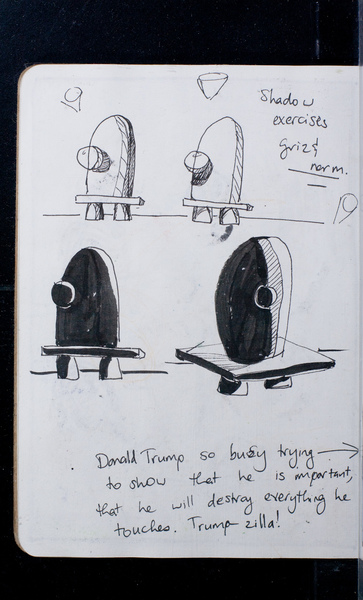 Shadow
exercises
Griz &
norm.
Donald Trump so busy trying
to show that he is important,
that he will destroy everything he
touches. Trump-zilla!